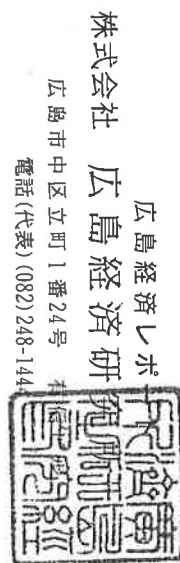 広島経済レポ
株式会社 広島経済研究所
広島市中区立町1番24号
電話(代表)(082)248-144